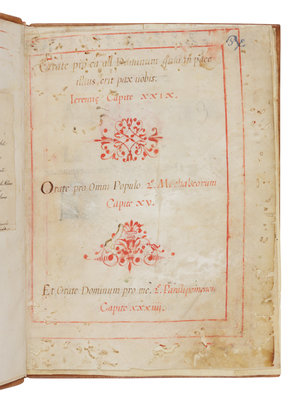 Orate pro ea ad Dominum quia in pace
illius, erit pax vobis.
Ieremię Capite XXIX.
Orate pro Omni Populo. 2. Machabeorum
Capite XV.
Et Orate Dominum pro me. 2. Paralipomenon
Capite XXXIIIJ.